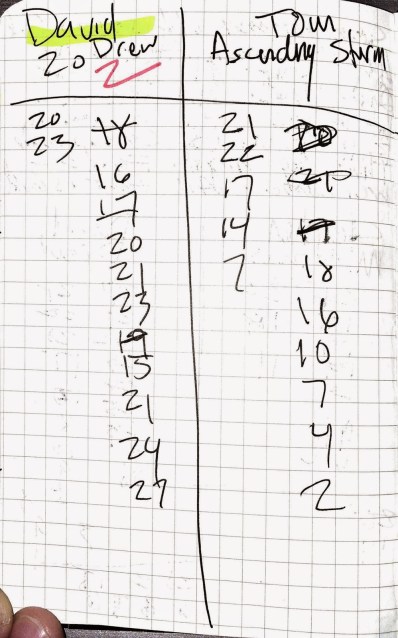 David Tom
20 Drew Ascending Storm
2
20 18 21
23 22
16 17
17 14
20 2 18
21 16
23 10
19
15 7
21 4
24 2
27